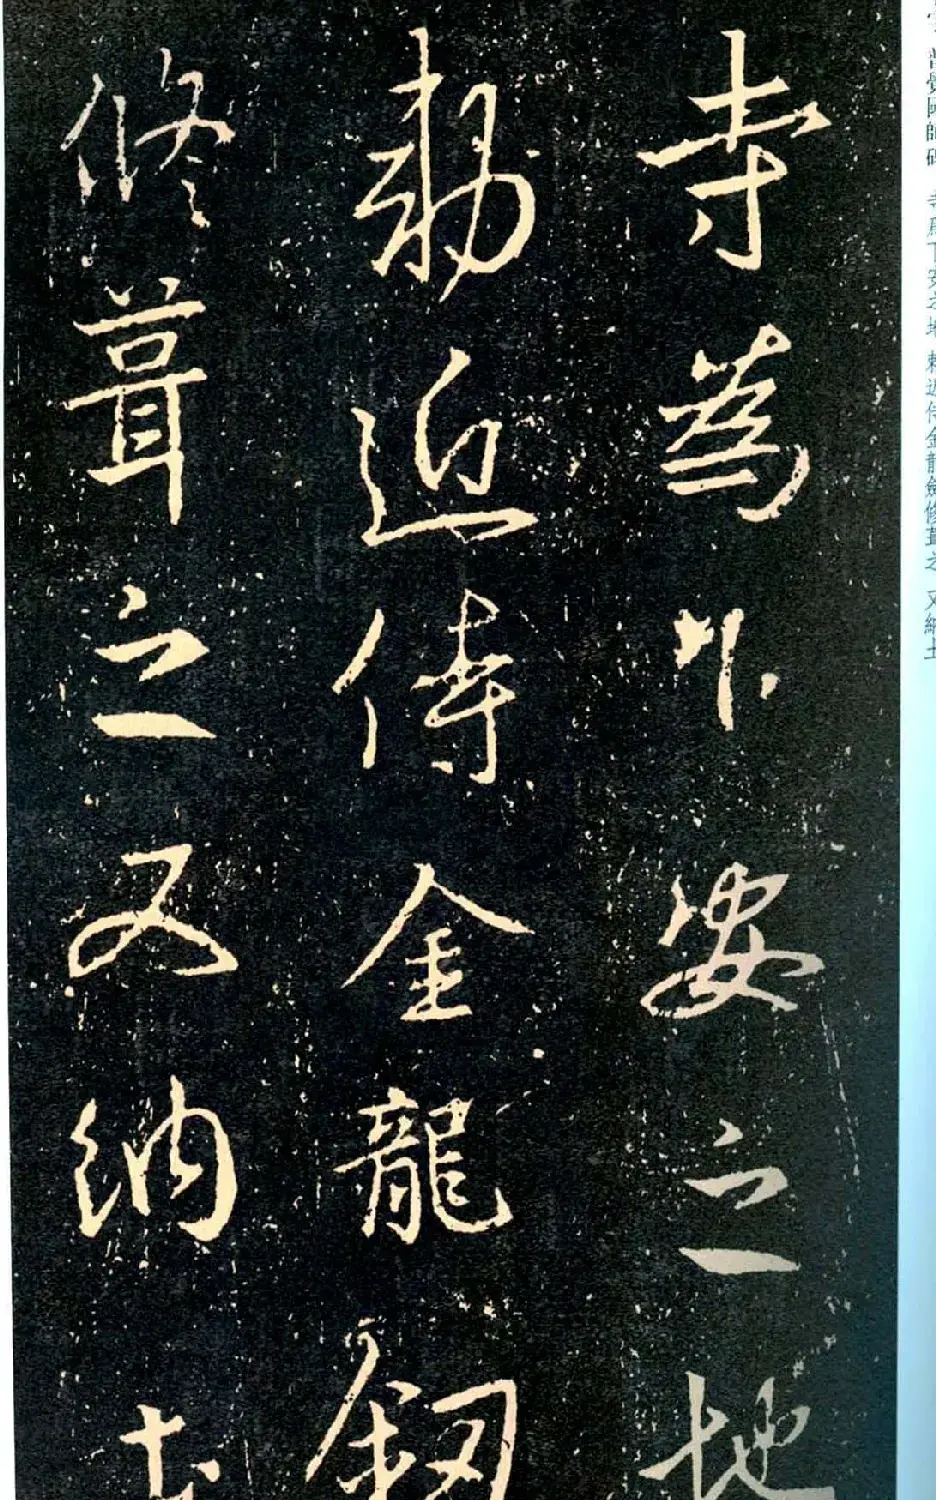 寺為下安之地
勑近侍金龍釼
修葺之又納土
普覺國師碑 寺爲下安之地 勑近侍金龍劒修葺之 又納土